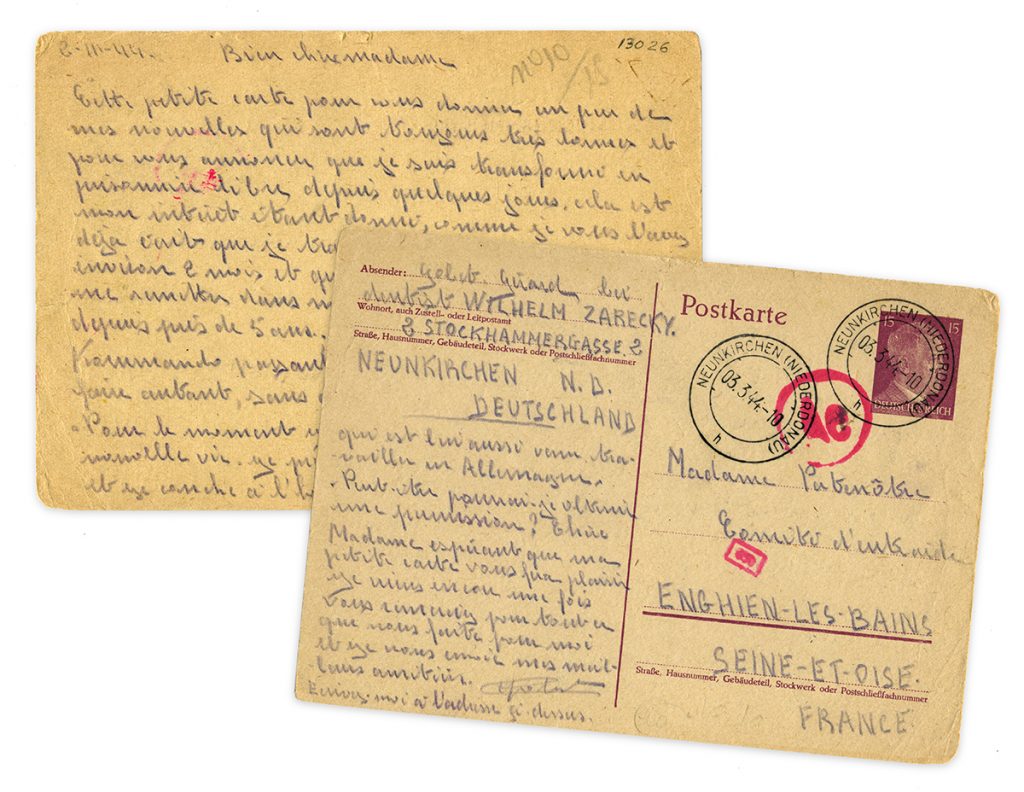 2-III-44. Bien chère madame
N°10/15
13026
Cette petite carte pour vous donner un peu de
mes nouvelles qui sont toujours très bonnes et
pour vous annoncer que je suis transformé en
prisonnier libre depuis quelques jours, cela est
mon intérêt étant donné, comme je vous l'avais
déjà écrit que je tra
environ 2 mois et qu
me remettre dans
depuis près de 5 ans.
Kommando passant
faire autant, sans
Pour le moment
nouvelle vie. je
et je couche à l'h
Absender: Geleb. Gérard bei
dentist WILHELM ZARECKY.
Wohnort, auch Zustell- oder Leitpostamt
2 STOCKHAMMERGASSE 2
Straße, Hausnummer, Gebäudeteil, Stockwerk oder Postschließfachnummer
NEUNKIRCHEN N.D.
DEUTSCHLAND
qui est lui aussi venu tra-
vailler en Allemagne.
Peut-être pourrai-je obtenir
une permission? Chère
Madame espérant que ma
petite carte vous fera plaisir
je viens encore une fois
vous remercier pour tout ce
que vous faite pour moi
et je vous envoie mes meil-
leurs amitiés.
Ecrivez-moi à l'adresse ci-dessus.
Postkarte
NEUNKIRCHEN (NIEDERDONAU)
03.3.44.-10
h
NEUNKIRCHEN (NIEDERDONAU)
03.3.44.-10
h
15 15
DEUTSCHES REICH
Ae
Madame Patenôtre
Comité d'entraide
ENGHIEN-LES-BAINS
SEINE-ET-OISE.
Straße, Hausnummer, Gebäudeteil, Stockwerk oder Postschließfachnummer
FRANCE